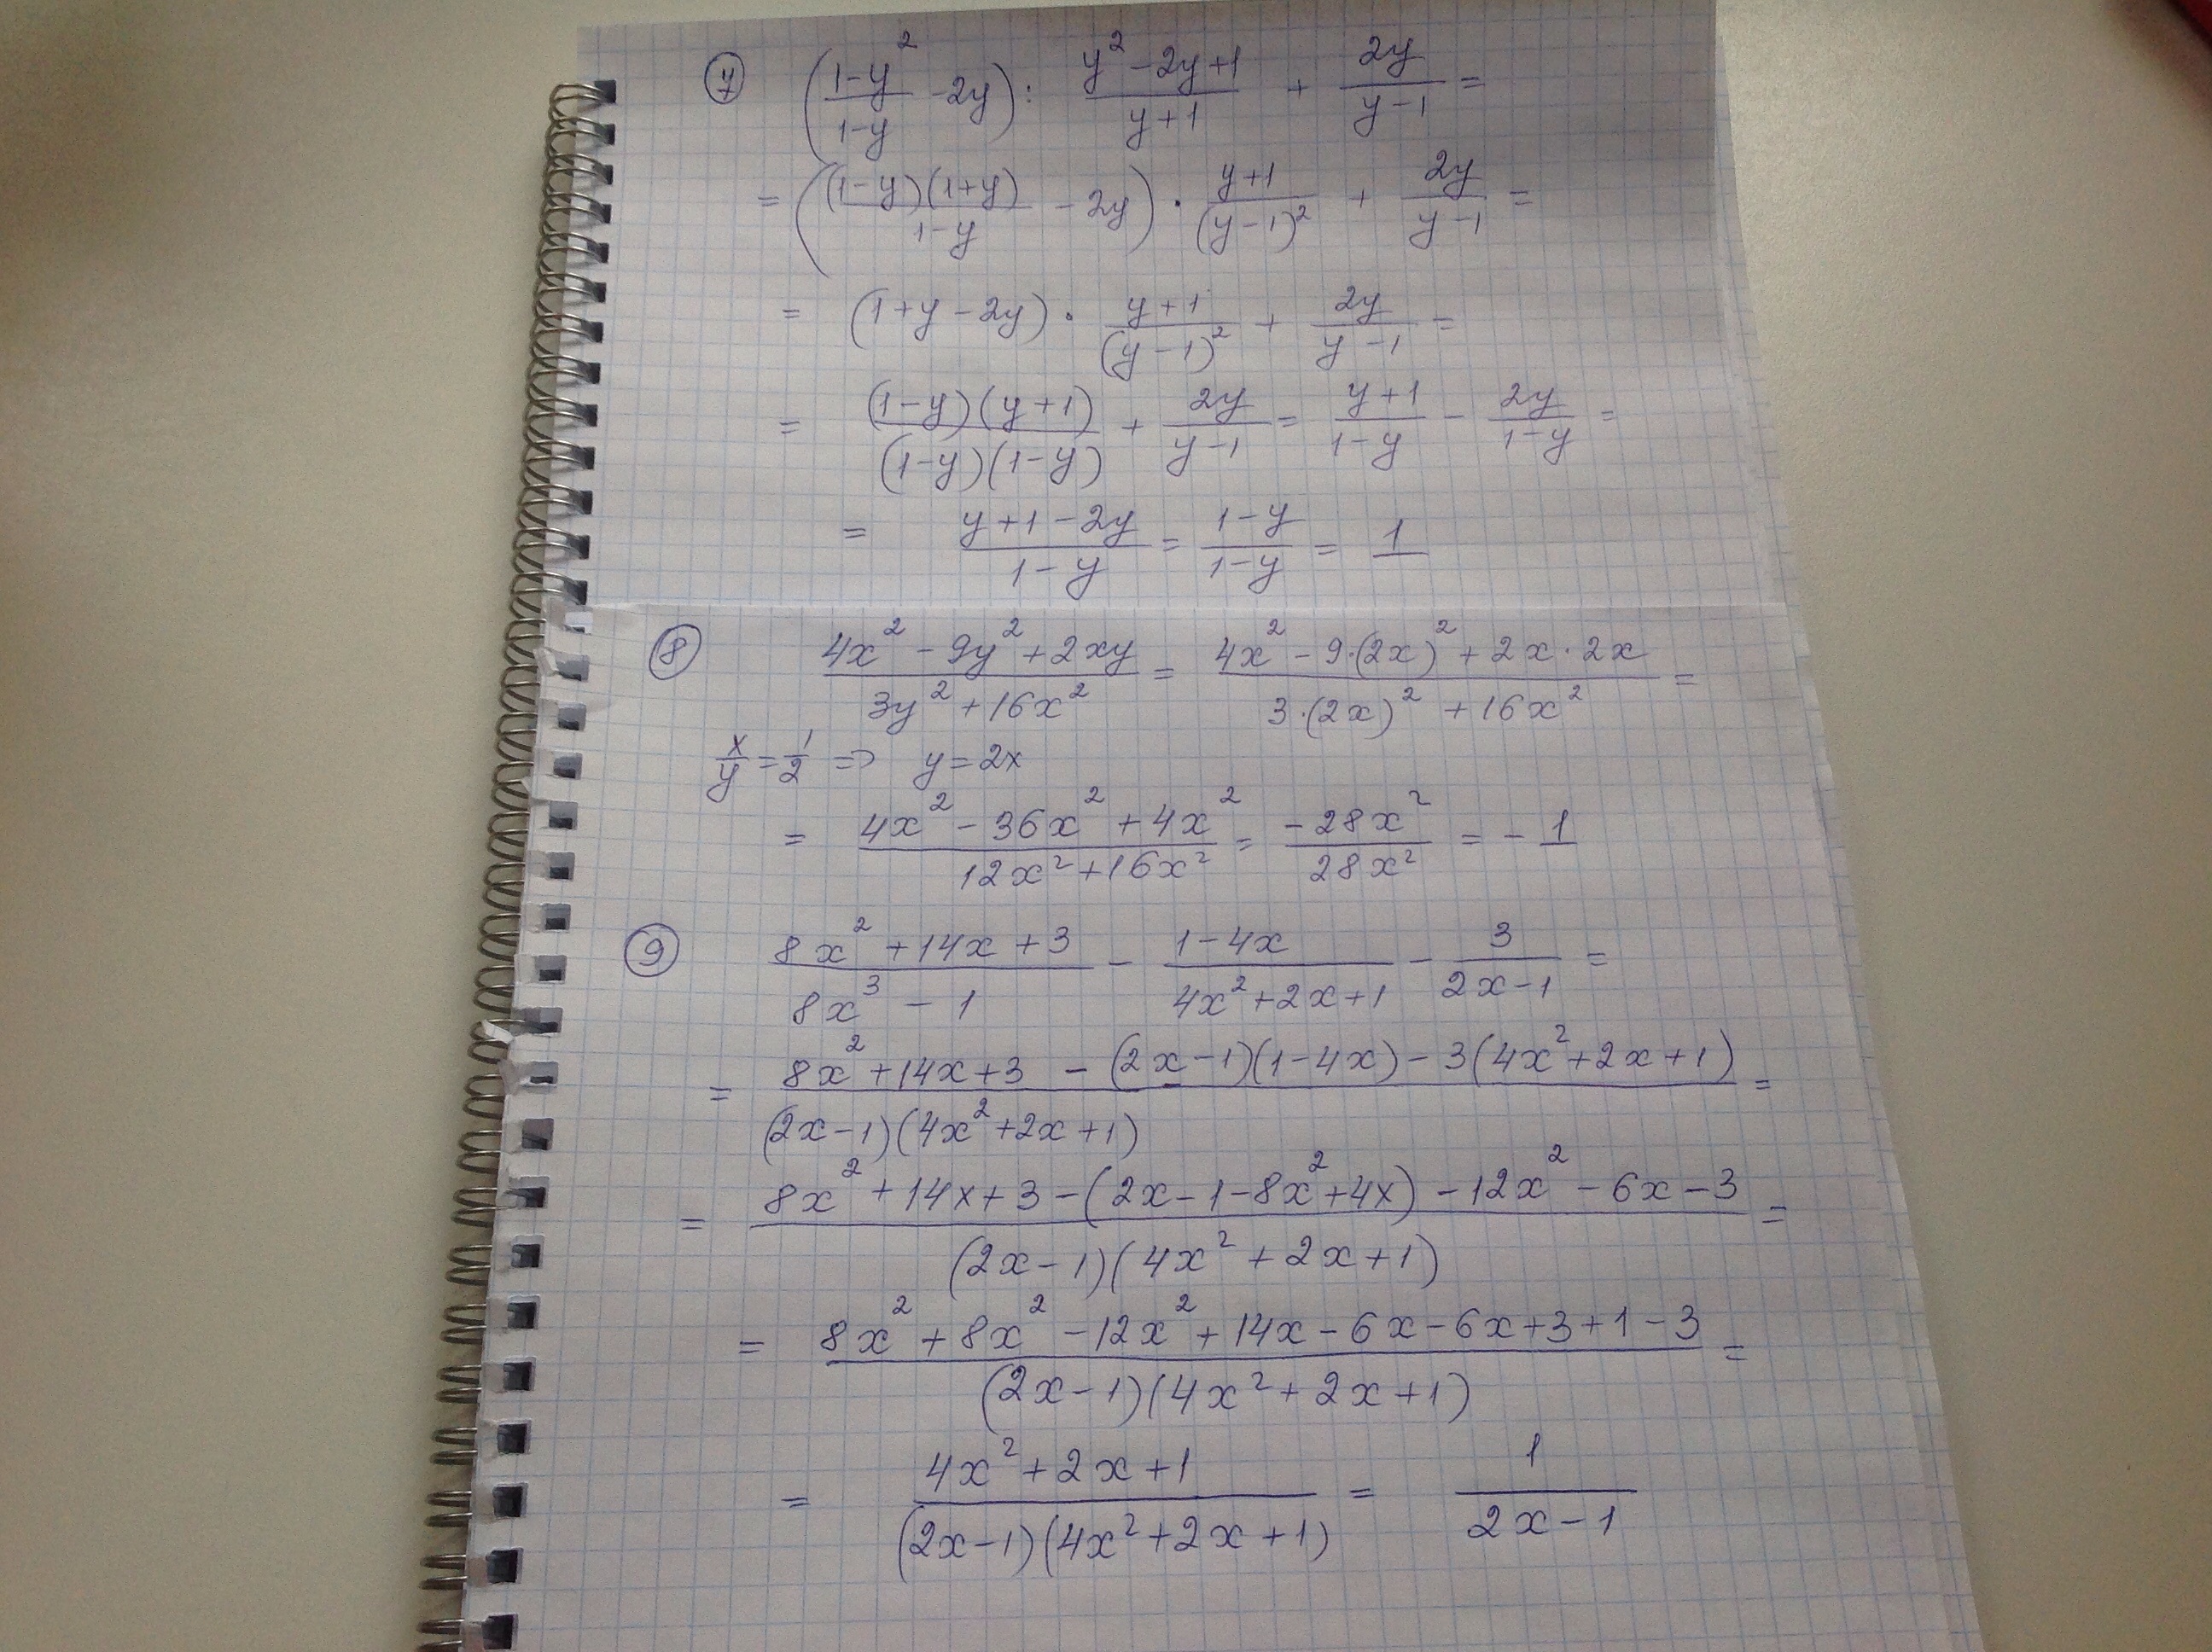 ⑦ ((1-y²)/(1-y) - 2y) : (y²-2y+1)/(y+1) + 2y/(y-1) =
= ((1-y)(1+y)/(1-y) - 2y) · (y+1)/(y-1)² + 2y/(y-1) =
= (1+y-2y) · (y+1)/(y-1)² + 2y/(y-1) =
= (1-y)(y+1)/((1-y)(1-y)) + 2y/(y-1) = (y+1)/(1-y) - 2y/(1-y) =
= (y+1-2y)/(1-y) = (1-y)/(1-y) = 1
⑧ (4x²-9y²+2xy)/(3y²+16x²) = (4x²-9·(2x)²+2x·2x)/(3·(2x)²+16x²) =
x/y = 1/2 => y = 2x
= (4x²-36x²+4x²)/(12x²+16x²) = -28x²/28x² = -1
⑨ (8x²+14x+3)/(8x³-1) - (1-4x)/(4x²+2x+1) - 3/(2x-1) =
= (8x²+14x+3 - (2x-1)(1-4x) - 3(4x²+2x+1))/((2x-1)(4x²+2x+1)) =
= (8x²+14x+3-(2x-1-8x²+4x)-12x²-6x-3)/((2x-1)(4x²+2x+1)) =
= (8x²+8x²-12x²+14x-6x-6x+3+1-3)/((2x-1)(4x²+2x+1)) =
= (4x²+2x+1)/((2x-1)(4x²+2x+1)) = 1/(2x-1)